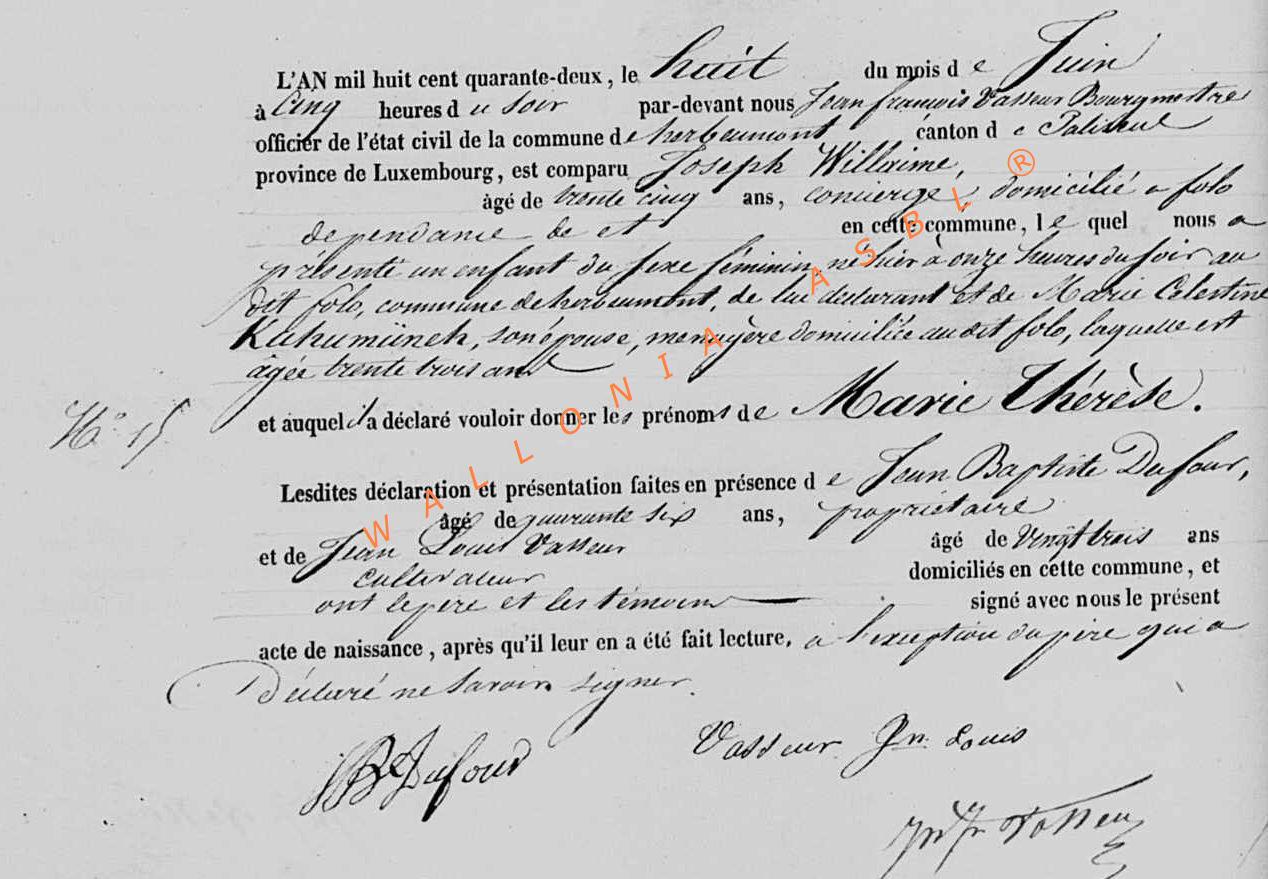 L'AN mil huit cent quarante-deux, le huit du mois de Juin
à Cinq heures du soir par-devant nous Jean françois Vasseur Bourgmestre
officier de l'état civil de la commune de herbeumont canton de Paliseul
province de Luxembourg, est comparu Joseph Willaime,
âgé de trente cinq ans, concierge, domicilié a folo
dependance de et en cette commune, lequel nous a
présenté un enfant du sexe féminin, né hier à onze heures du soir au
dit folo, commune de herbeumont, de lui declarant et de Marie Celestine
son épouse, menagère domiciliée au dit folo, laquelle est
âgée trente trois ans
N° 15
et auquel il a déclaré vouloir donner les prénoms de Marie Thérèse.
Lesdites déclaration et présentation faites en présence de Jean Baptiste Dufour,
âgé de quarante six ans, propriétaire
et de Jean Louis Vasseur âgé de Vingt trois ans
cultivateur domiciliés en cette commune, et
ont le père et les témoins signé avec nous le présent
acte de naissance, après qu'il leur en a été fait lecture, a l'exception du père qui a
Déclaré ne savoir signer.
JBte Dufour
Vasseur Jn. Louis
Jn fr Vasseur
WALLONIA ASBL ®